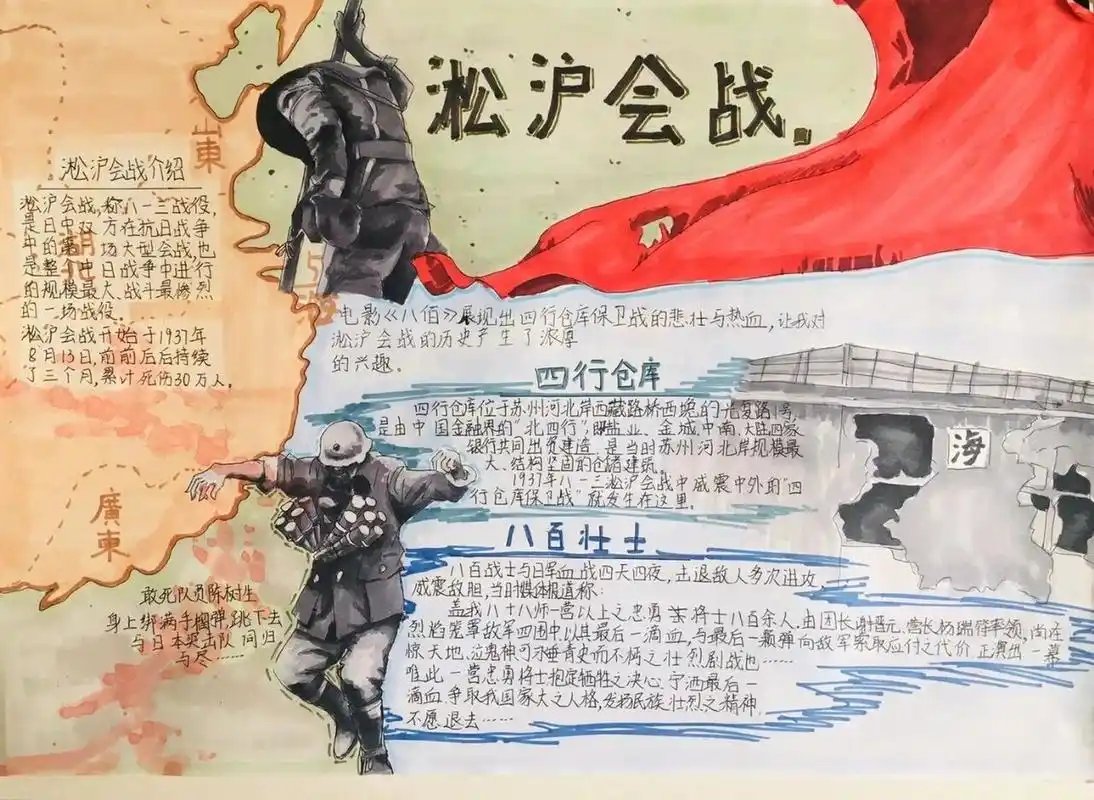 淞沪会战.
山東
淞沪会战介绍
淞沪会战,称八一三战役,
是日中双方在抗日战争
中的第一场大型会战,也
是整个中日战争中进行
的规模最大、战斗最惨烈
的一场战役.
淞沪会战开始于1937年
8月13日,前前后后持续
了三个月,累计死伤30万人.
電影《八佰》展现出四行仓库保卫战的悲壮与热血,让我对
淞沪会战的历史产生了浓厚
的兴趣.
四行仓库
四行仓库位于苏州河北岸西藏路桥西堍的光复路1号,
是由中国金融界的"北四行",即盐业、金城、中南、大陆四家
银行共同出资建造.是当时苏州河北岸规模最
大、结构坚固的仓储建筑.
1937年八一三淞沪会战中威震中外的"四
行仓库保卫战"就发生在这里.
海
八百壮士
八百战士与日军血战四天四夜,击退敌人多次进攻,
威震敌胆,当时媒体报道称:
盖我八十八师一营以上之忠勇将士八百余人.由团长谢晋元.营长杨瑞符率领,尚在
烈焰笼罩敌军四围中以其最后一滴血,与最后一颗弹向敌军索取应付之代价 正演出一幕
惊天地、泣鬼神可永垂青史而不朽之壮烈剧战也……
唯此一营忠勇将士抱定牺牲之决心,宁洒最后一
滴血,争取我国家大之人格,发扬民族壮烈之精神.
不愿退去……
廣東
敢死队员陈树生
身上绑满手榴弹,跳下去
与日本突击队同归
与尽……